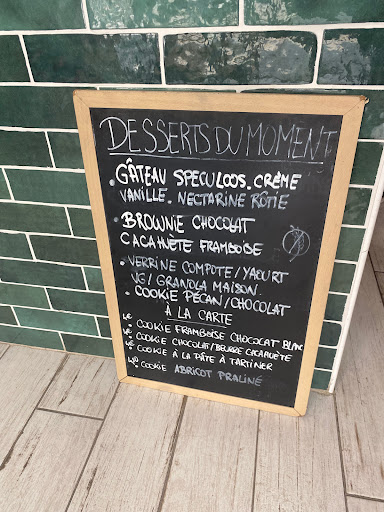 DESSERTS DU MOMENT
• GÂTEAU SPECULOOS. CRÈME
VANILLE. NECTARINE RÔTIE
• BROWNIE CHOCOLAT
CACAHUÈTE FRAMBOISE
• VERRINE COMPOTE/YAOURT
VG/GRANOLA MAISON.
• COOKIE PÉCAN/CHOCOLAT
À LA CARTE
• COOKIE FRAMBOISE CHOCOLAT BLANC
• COOKIE CHOCOLAT/BEURRE CACAHUÈTE
• COOKIE À LA PÂTE À TARTINER
• COOKIE ABRICOT PRALINÉ